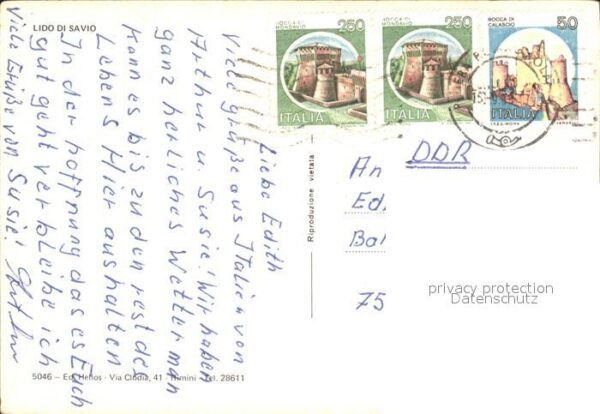 LIDO DI SAVIO
Liebe Edith
Viele grüße aus Italien von
Arthur u. Susie! Wir haben
ganz herliches Wetter man
kann es bis zu den rest des
Lebens Hier aushalten
In der hoffnung das es Euch
gut geht verbleibe ich
Viele Grüße von Susie!
5046 - Ed. Helios - Via Clodia, 41 - Rimini - Tel. 28611
Riproduzione vietata
ROCCA DI
MONDAVIO
250
ITALIA
ROCCA DI
MONDAVIO
250
ITALIA
ROCCA DI
CALASCIO
50
ITALIA
DDR
An
Ed
Bal
75
privacy protection
Datenschutz